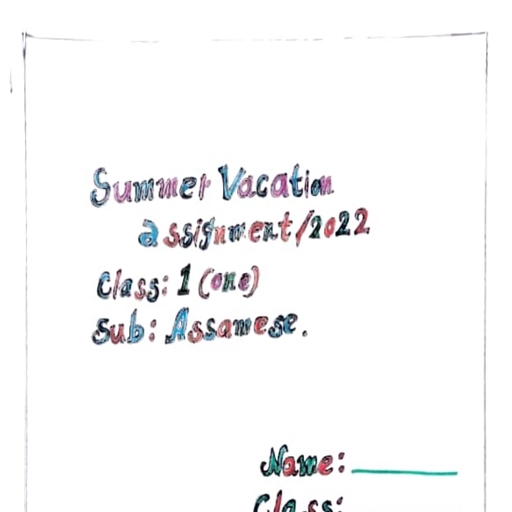 Summer Vacation
assignment/2022
Class: 1 (one)
Sub: Assamese.
Name:
Class: